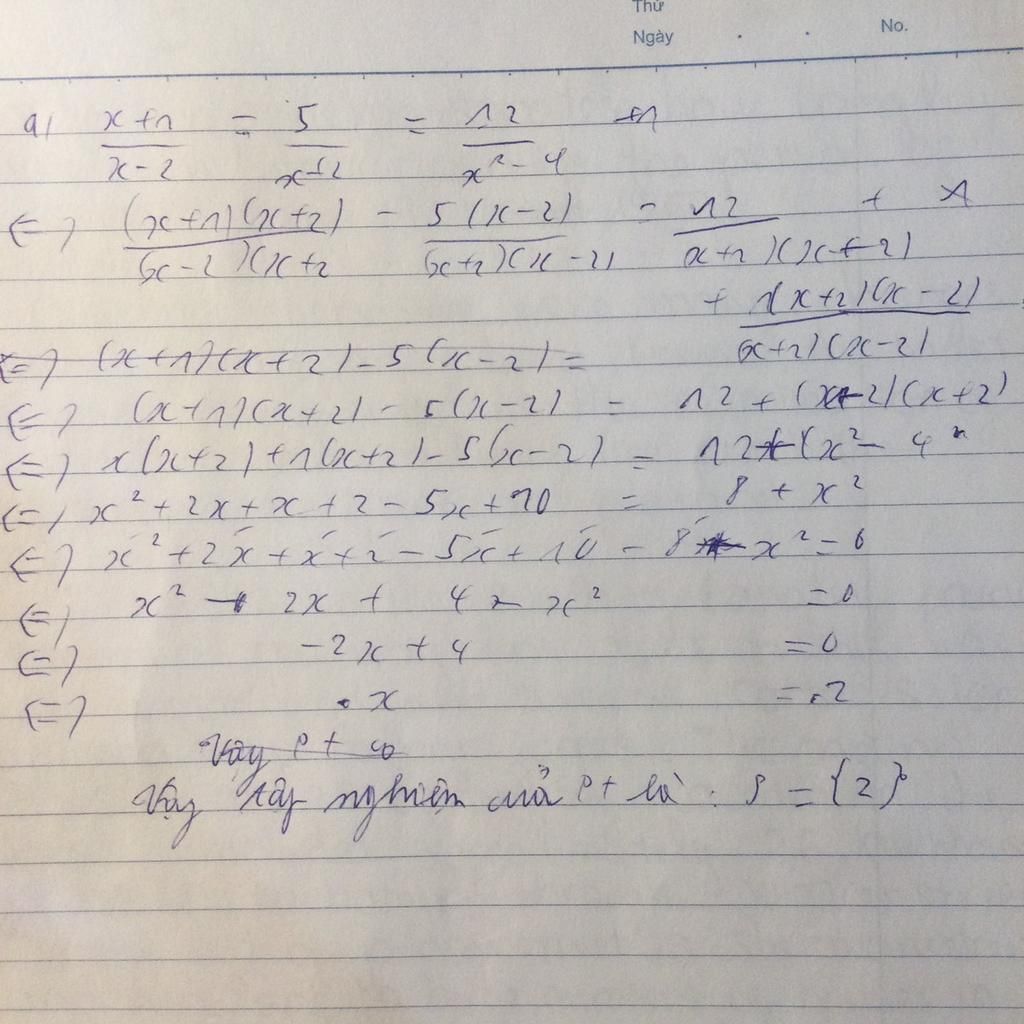 Thứ
Ngày . . No.
a) \frac{x+1}{x-2} = \frac{5}{x+2} = \frac{12}{x²-4} +1
<=> \frac{(x+1)(x+2)}{(x-2)(x+2} - \frac{5(x-2)}{(x+2)(x-2)} = \frac{12}{x+2)(x-2)} + 1
+ \frac{1(x+2)(x-2)}{(x+2)(x-2)}
<=> (x+1)(x+2)-5(x-2) =
<=> (x+1)(x+2) - 5(x-2) = 12 + (x-2)(x+2)
<=> x(x+2)+1(x+2)-5(x-2) = 12+(x²-4
<=> x²+2x+x+2-5x+10 = 8+x²
<=> x²+2x+x+2-5x+10-8-x²=0
<=> x² - 2x + 4 - x² =0
<=> -2x+4 =0
<=> x =2
Vậy pt có
Vậy tập nghiệm của pt là : S = {2}